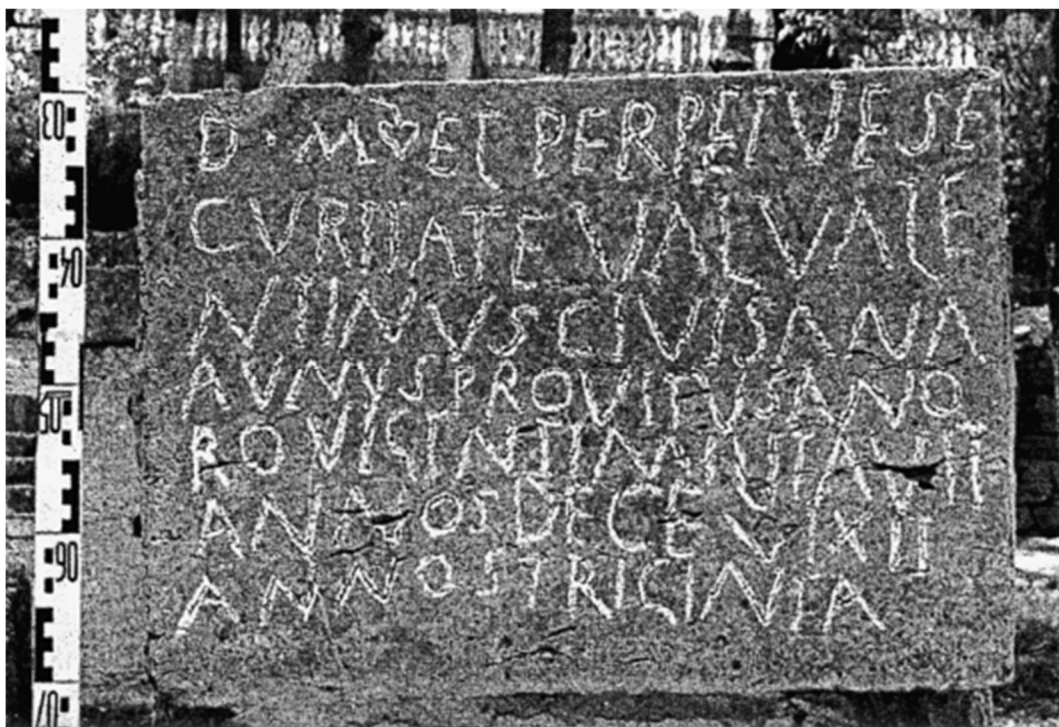 D · M ❦ ET PERPETVE SE
CVRITATE VAL VALE
NTINVS CIVIS ANA
AVMVS PROVITVS ANO
RO VIGINTI MILITAVIT
ANNOS DECE VIXIT
ANNOS TRIGINTA